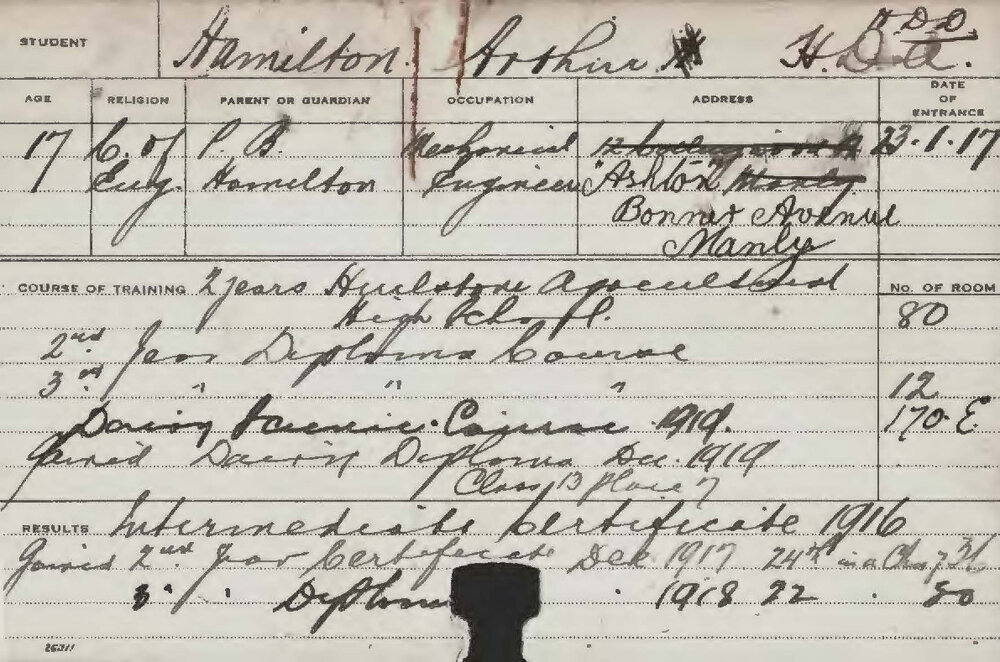 H.D.D.
STUDENT Hamilton. Arthur H.D.A.
AGE RELIGION PARENT OR GUARDIAN OCCUPATION ADDRESS DATE OF ENTRANCE
17 C. of P. B. Mechanical 23.1.17
Eng. Hamilton Engineer "Ashton" Manly
Bonner Avenue
Manly
COURSE OF TRAINING 2 years Hurlstone Agricultural No. OF ROOM
High School. 80
2nd Year Diploma Course
3rd " " " 12
Dairy Science Course 1919. 170 E.
Gained Dairy Diploma Dec. 1919
Class 13 place 7
RESULTS Intermediate Certificate 1916
Gained 2nd Year Certificate Dec 1917 24th in a Class of 36
3 " " Diploma 1918 22